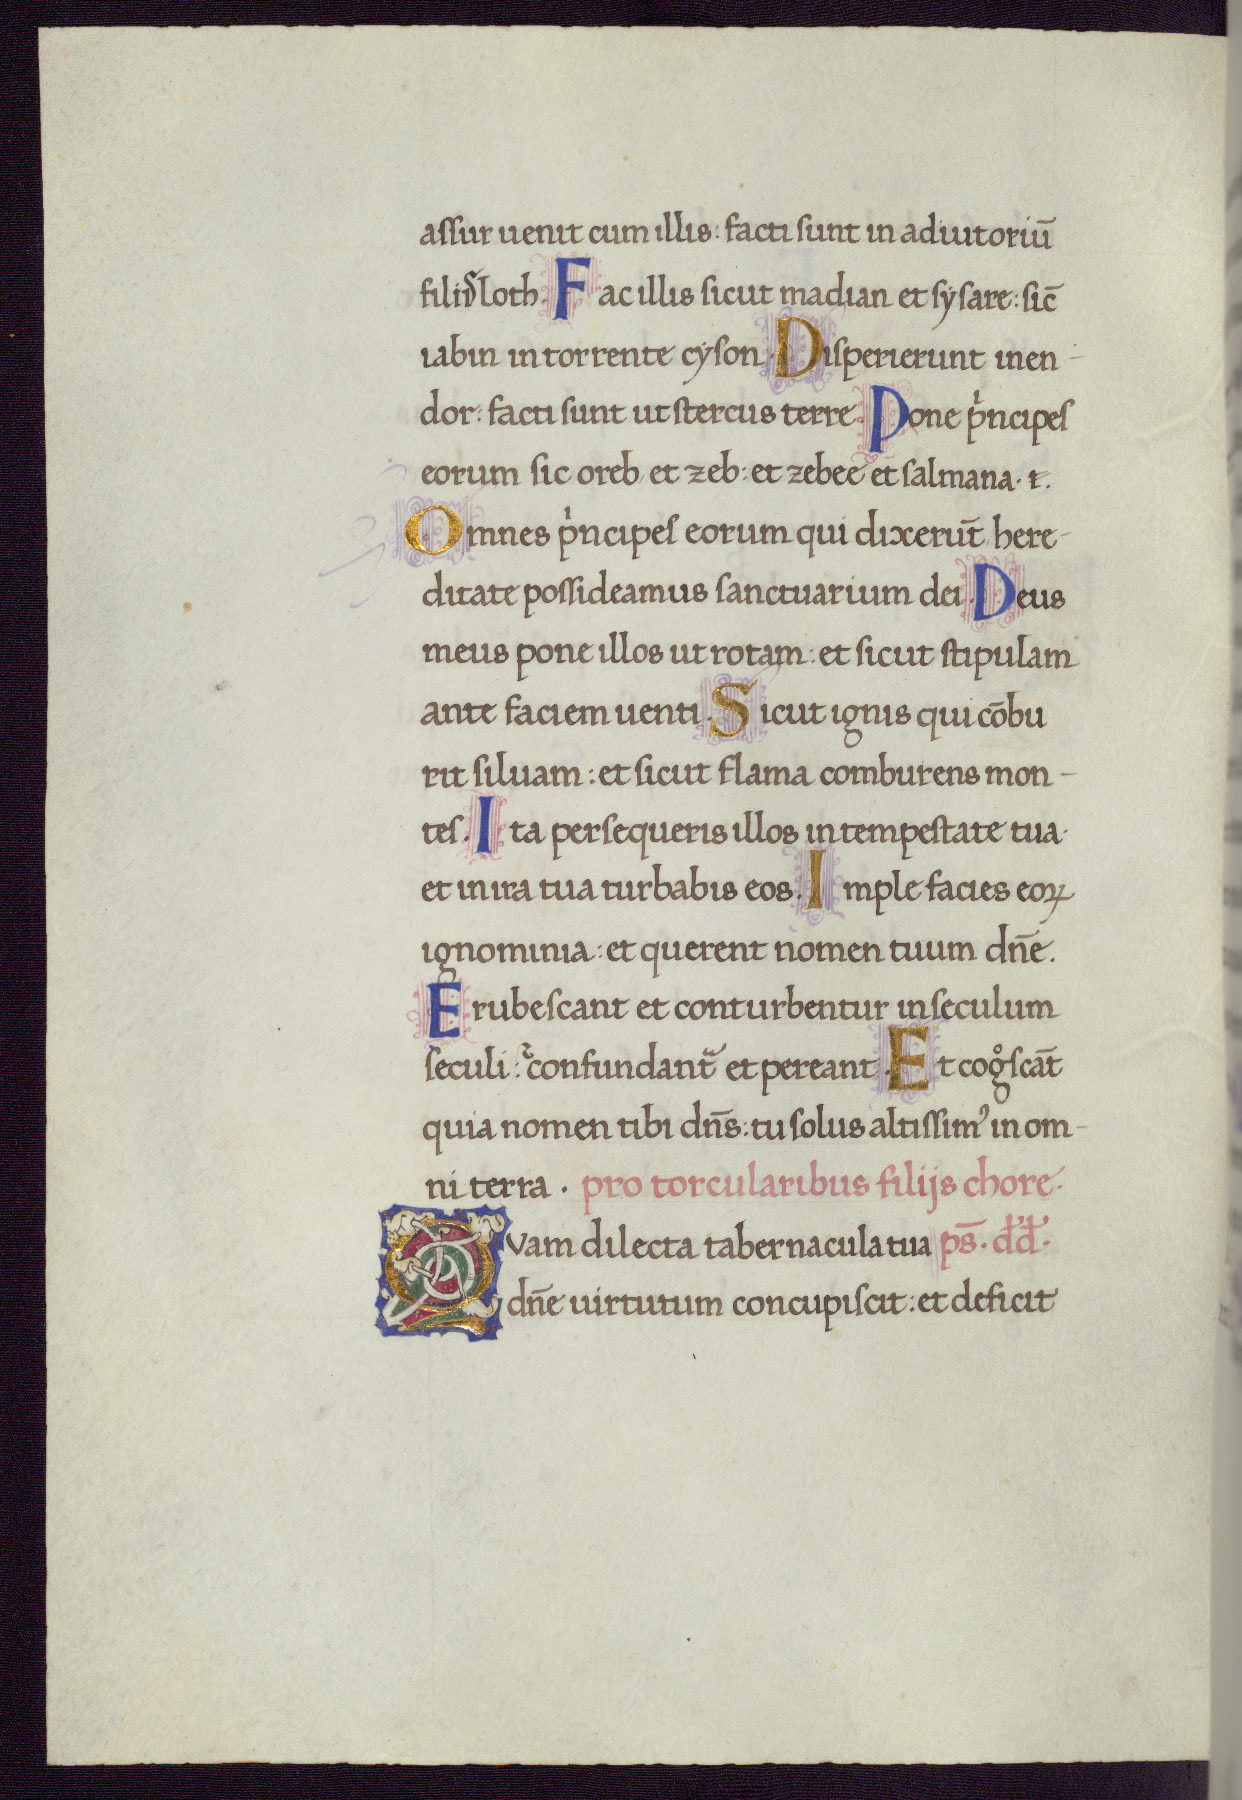 assur uenit cum illis: facti sunt in adiutoriū
filiis loth. Fac illis sicut madian et sẏsare: sic̄
iabin in torrente cẏson. Disperierunt in en-
dor: facti sunt ut stercus terre. Pone pⁱncipes
eorum sic oreb et zeb: et zebeē et salmana. t.
Omnes pⁱncipes eorum qui dixerūt here-
ditate possideamus sanctuarium dei. Deus
meus pone illos ut rotam: et sicut stipulam
ante faciem uenti. Sicut ignis qui cōbu
rit siluam: et sicut flama comburens mon-
tes. Ita persequeris illos in tempestate tua.
et in ira tua turbabis eos. Imple facies eoꝝ
ignominia: et querent nomen tuum dn̄e.
Erubescant et conturbentur in seculum
seculi: ⁊ confundant᷑ et pereant. Et cogͦscāt
quia nomen tibi dn̄s: tu solus altissimꝰ in om-
ni terra. pro torcularibus filijs chore.
Qvam dilecta tabernacula tua ps̄. dd̵.
dn̄e uirtutum concupiscit: et deficit